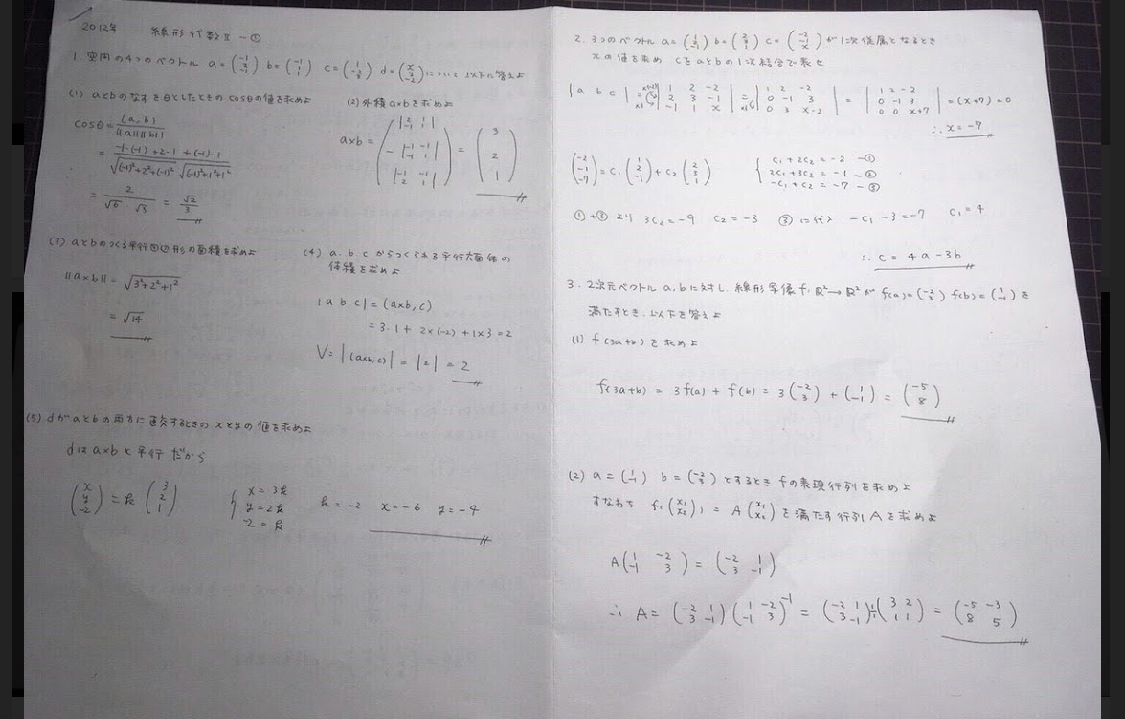 2012年 線形代数Ⅱ-①
1. 空間の4つのベクトル a = (-1 2 -1) b = (-1 1 1) c = (1 -2 3) d = (x y -2) について以下に答えよ
(1) aとbのなす角をθとしたときの cosθの値を求めよ
cosθ = (a, b) / ||a|| ||b||
= -1·(-1) + 2·1 + (-1)·1 / √(-1)²+2²+(-1)² √(-1)²+1²+1²
= 2 / √6 · √3 = √2 / 3
(2) 外積 a×b を求めよ
a×b = ( |2 1 -1 1| -|-1 -1 -1 1| |-1 -1 2 1| ) = (3 2 1)
(3) aとbのつくる平行四辺形の面積を求めよ
||a×b|| = √3²+2²+1²
= √14
(4) a, b, c からつくられる平行六面体の
体積を求めよ
|a b c| = (a×b, c)
= 3·1 + 2×(-2) + 1×3 = 2
V = |(a×b, c)| = |2| = 2
(5) dがaとbの両方に直交するときの xとyの値を求めよ
dは a×b と平行 だから
(x y -2) = k (3 2 1) { x = 3k y = 2k -2 = k k = -2 x = -6 y = -4
2. 3つのベクトル a = (1 2 -1) b = (2 3 1) c = (-2 -1 x) が1次従属となるとき
xの値を求め cをaとbの1次結合で表せ
|a b c| = |1 2 -2 2 3 -1 -1 1 x| = |1 2 -2 0 -1 3 0 3 x-2| = |1 2 -2 0 -1 3 0 0 x+7| = (x+7) = 0
∴ x = -7
(-2 -1 -7) = c₁ (1 2 -1) + c₂ (2 3 1) { c₁ + 2c₂ = -2 -① 2c₁ + 3c₂ = -1 -② -c₁ + c₂ = -7 -③
①+③ より 3c₂ = -9 c₂ = -3 ③に代入 -c₁ -3 = -7 c₁ = 4
∴ c = 4a - 3b
3. 2次元ベクトル a, b に対し, 線形写像 f: R² → R² が f(a) = (-2 3) f(b) = (1 -1) を
満たすとき, 以下を答えよ
(1) f(3a+b) を求めよ
f(3a+b) = 3f(a) + f(b) = 3(-2 3) + (1 -1) = (-5 8)
(2) a = (1 -1) b = (-2 3) とするとき fの表現行列を求めよ
すなわち f(x₁ x₂) = A(x₁ x₂) を満たす行列Aを求めよ
A(1 -2 -1 3) = (-2 1 3 -1)
∴ A = (-2 1 3 -1)(1 -2 -1 3)⁻¹ = (-2 1 3 -1) 1/1 (3 2 1 1) = (-5 -3 8 5)